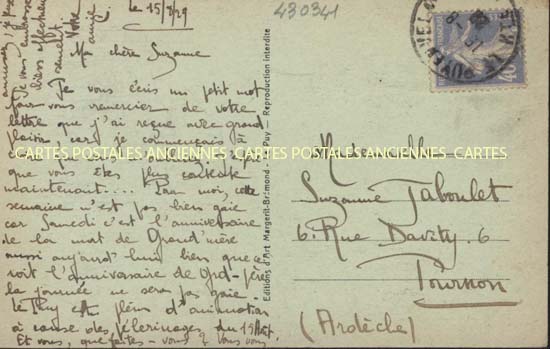 le 15/8/29
430341
Ma chère Suzanne
Je vous écris un petit mot
pour vous remercier de votre
lettre que j'ai reçue avec grand
plaisir car je commençais à
CARTES POSTALES ANCIENNES CARTES POSTALES ANCIENNES CARTES
que vous êtes plus contente
maintenant.... Pour moi cette
semaine n'est pas bien gaie
car Samedi c'est l'anniversaire
de la mort de Grand'mère
aussi aujourd'hui bien que ce
soit l'anniversaire de Grd-père
la journée ne sera pas gaie.
le Puy est plein d'animation
à cause des pèlerinages du 15 Août.
Et vous, que faites-vous ? Vous vous
Je vous embrasse
bien affectueusement
Votre
amie
Editions d'Art Margerit-Brémond - Le Puy - Reproduction interdite
Mademoiselle
Suzanne Taboulet
6. Rue Davity. 6
Tournon
(Ardèche)